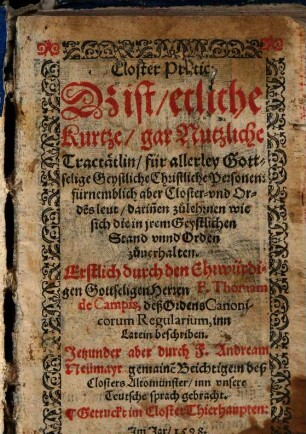 Closter Practic,
Dz ist/etliche
Kurtze/gar Nutzliche
Tractätlin/für allerley Gott-
selige Geystliche Christliche Personen:
fürnemblich aber Closter-vnd Or-
dēs leut/dariñen zůlehrnen wie
sich die in jrem Geystlichen
Stand vnnd Orden
zůuerhalten.
Erstlich durch den Ehrwürdi-
gen Gottseligen Herren F. Thomam
de Campis, deß Ordens Canoni-
corum Regularium, inn
Latein beschriben.
Jetzunder aber durch F. Andream
Neümayr gemaine Beichtigern deß
Closters Altomünster/inn vnsere
Teutsche sprach gebracht.
Getruckt im Closter Thierhaupten:
Im Jar/1598.